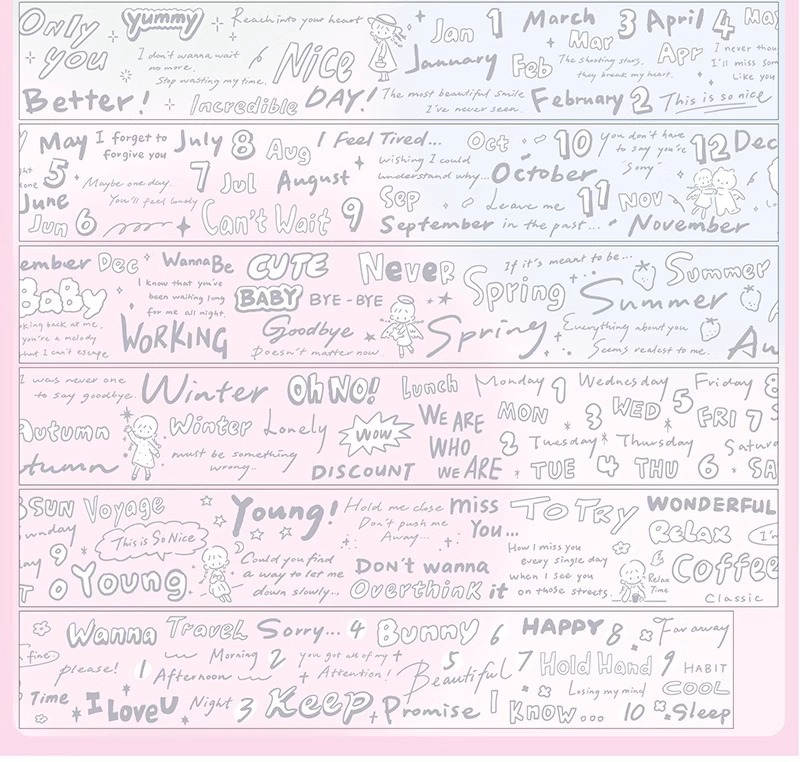 Only you
yummy
Reach into your heart
I don't wanna wait
no more.
Stop wasting my time.
Nice
DAY!
Better!
Incredible
The most beautiful smile
I've never seen.
Jan 1
January
Feb
March
Mar
3 April 4
The shooting stars,
they break my heart.
Apr
February 2
May
I never thou
I'll miss som
Like you
This is so nice
May
I forget to
forgive you
July 8
Aug
I Feel Tired...
Oct
10
You don't have
to say you're
"Sorry"
12 Dec
5
Maybe one day.
You'll feel lonely
7 Jul
August
wishing I could
understand why...
October
June
Jun 6
Can't Wait
9
Sep
September
Leave me
in the past...
11 Nov
November
ember Dec
WannaBe
CUTE
Never
If it's meant to be...
Summer
Baby
I know that you've
been waiting long
for me all night.
BABY
BYE-BYE
Spring
Summer
king back at me,
you're a melody
hat I can't escape
WORKING
Goodbye
Doesn't matter now.
Spring
Everything about you
Seems realest to me.
Au
I was never one
to say goodbye.
Winter
Oh NO!
Lunch
Monday 1
Wednesday
Friday 8
Autumn
Winter
Lonely
WOW
WE ARE
WHO
WE ARE
MON
3 WED 5
FRI 7 S
Autumn
must be something
wrong..
DISCOUNT
2 Tuesday
TUE 4
Thursday
THU 6
Satur
SA
SUN
Voyage
Young!
Hold me close
Don't push me
Away...
miss
You...
To Try
WONDERFUL
unday
This is So Nice
Relax
I'm
9
0
Young
Could you find
a way to let me
down slowly...
Don't wanna
Overthink it
How I miss you
every single day
when I see you
on those streets.
Relax
Time
Coffee
Classic
Wanna
Travel
Sorry... 4
Bunny 6
HAPPY 8
Far away
fine
please!
1
Morning
Afternoon
2
you got all of my
Attention!
5
Beautiful
7 Hold Hand 9
HABIT
Time
I Love U
Night 3
Keep
Promise
I Know...
Losing my mind
10
COOL
Sleep